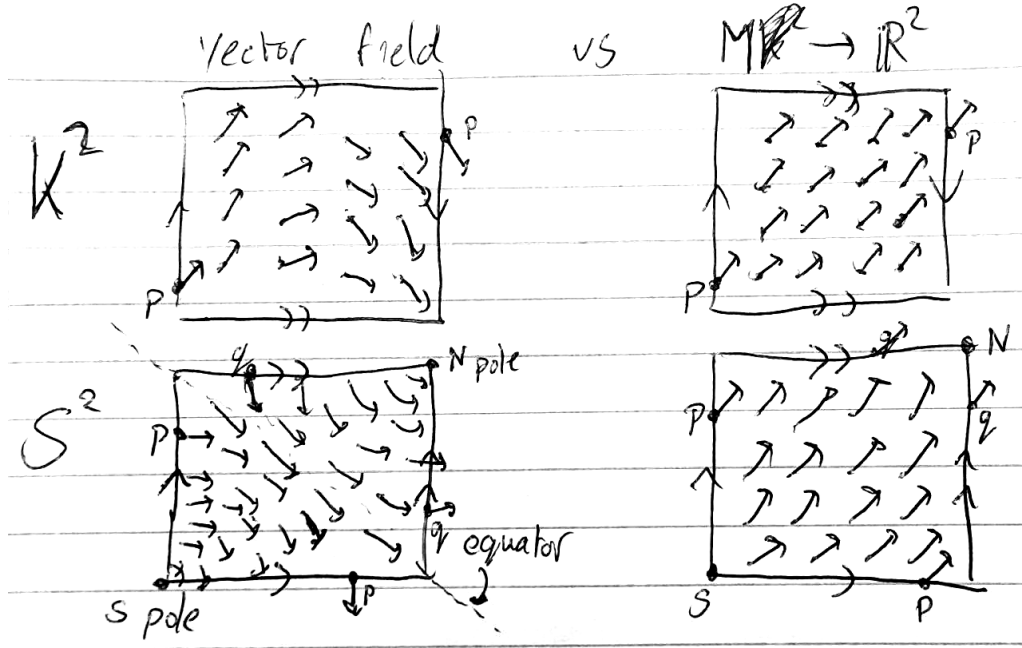 Vector field vs M → ℝ²
K²
P
P
P
P
S²
q
N pole
P
q
equator
S pole
P
q
N
P
q
S
P